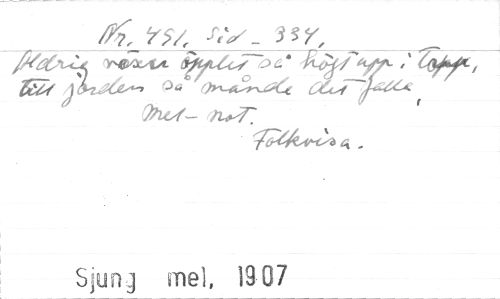 Nr. 491. Sid - 334.
Aldrig växer äpplet så högt upp i topp,
till jorden så månde det falla,
Mel-not.
Folkvisa.
Sjung mel, 1907